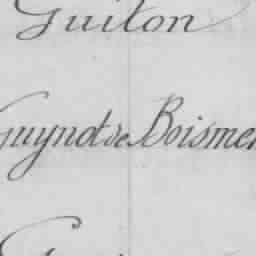 Guiton
Guynot de Boismen